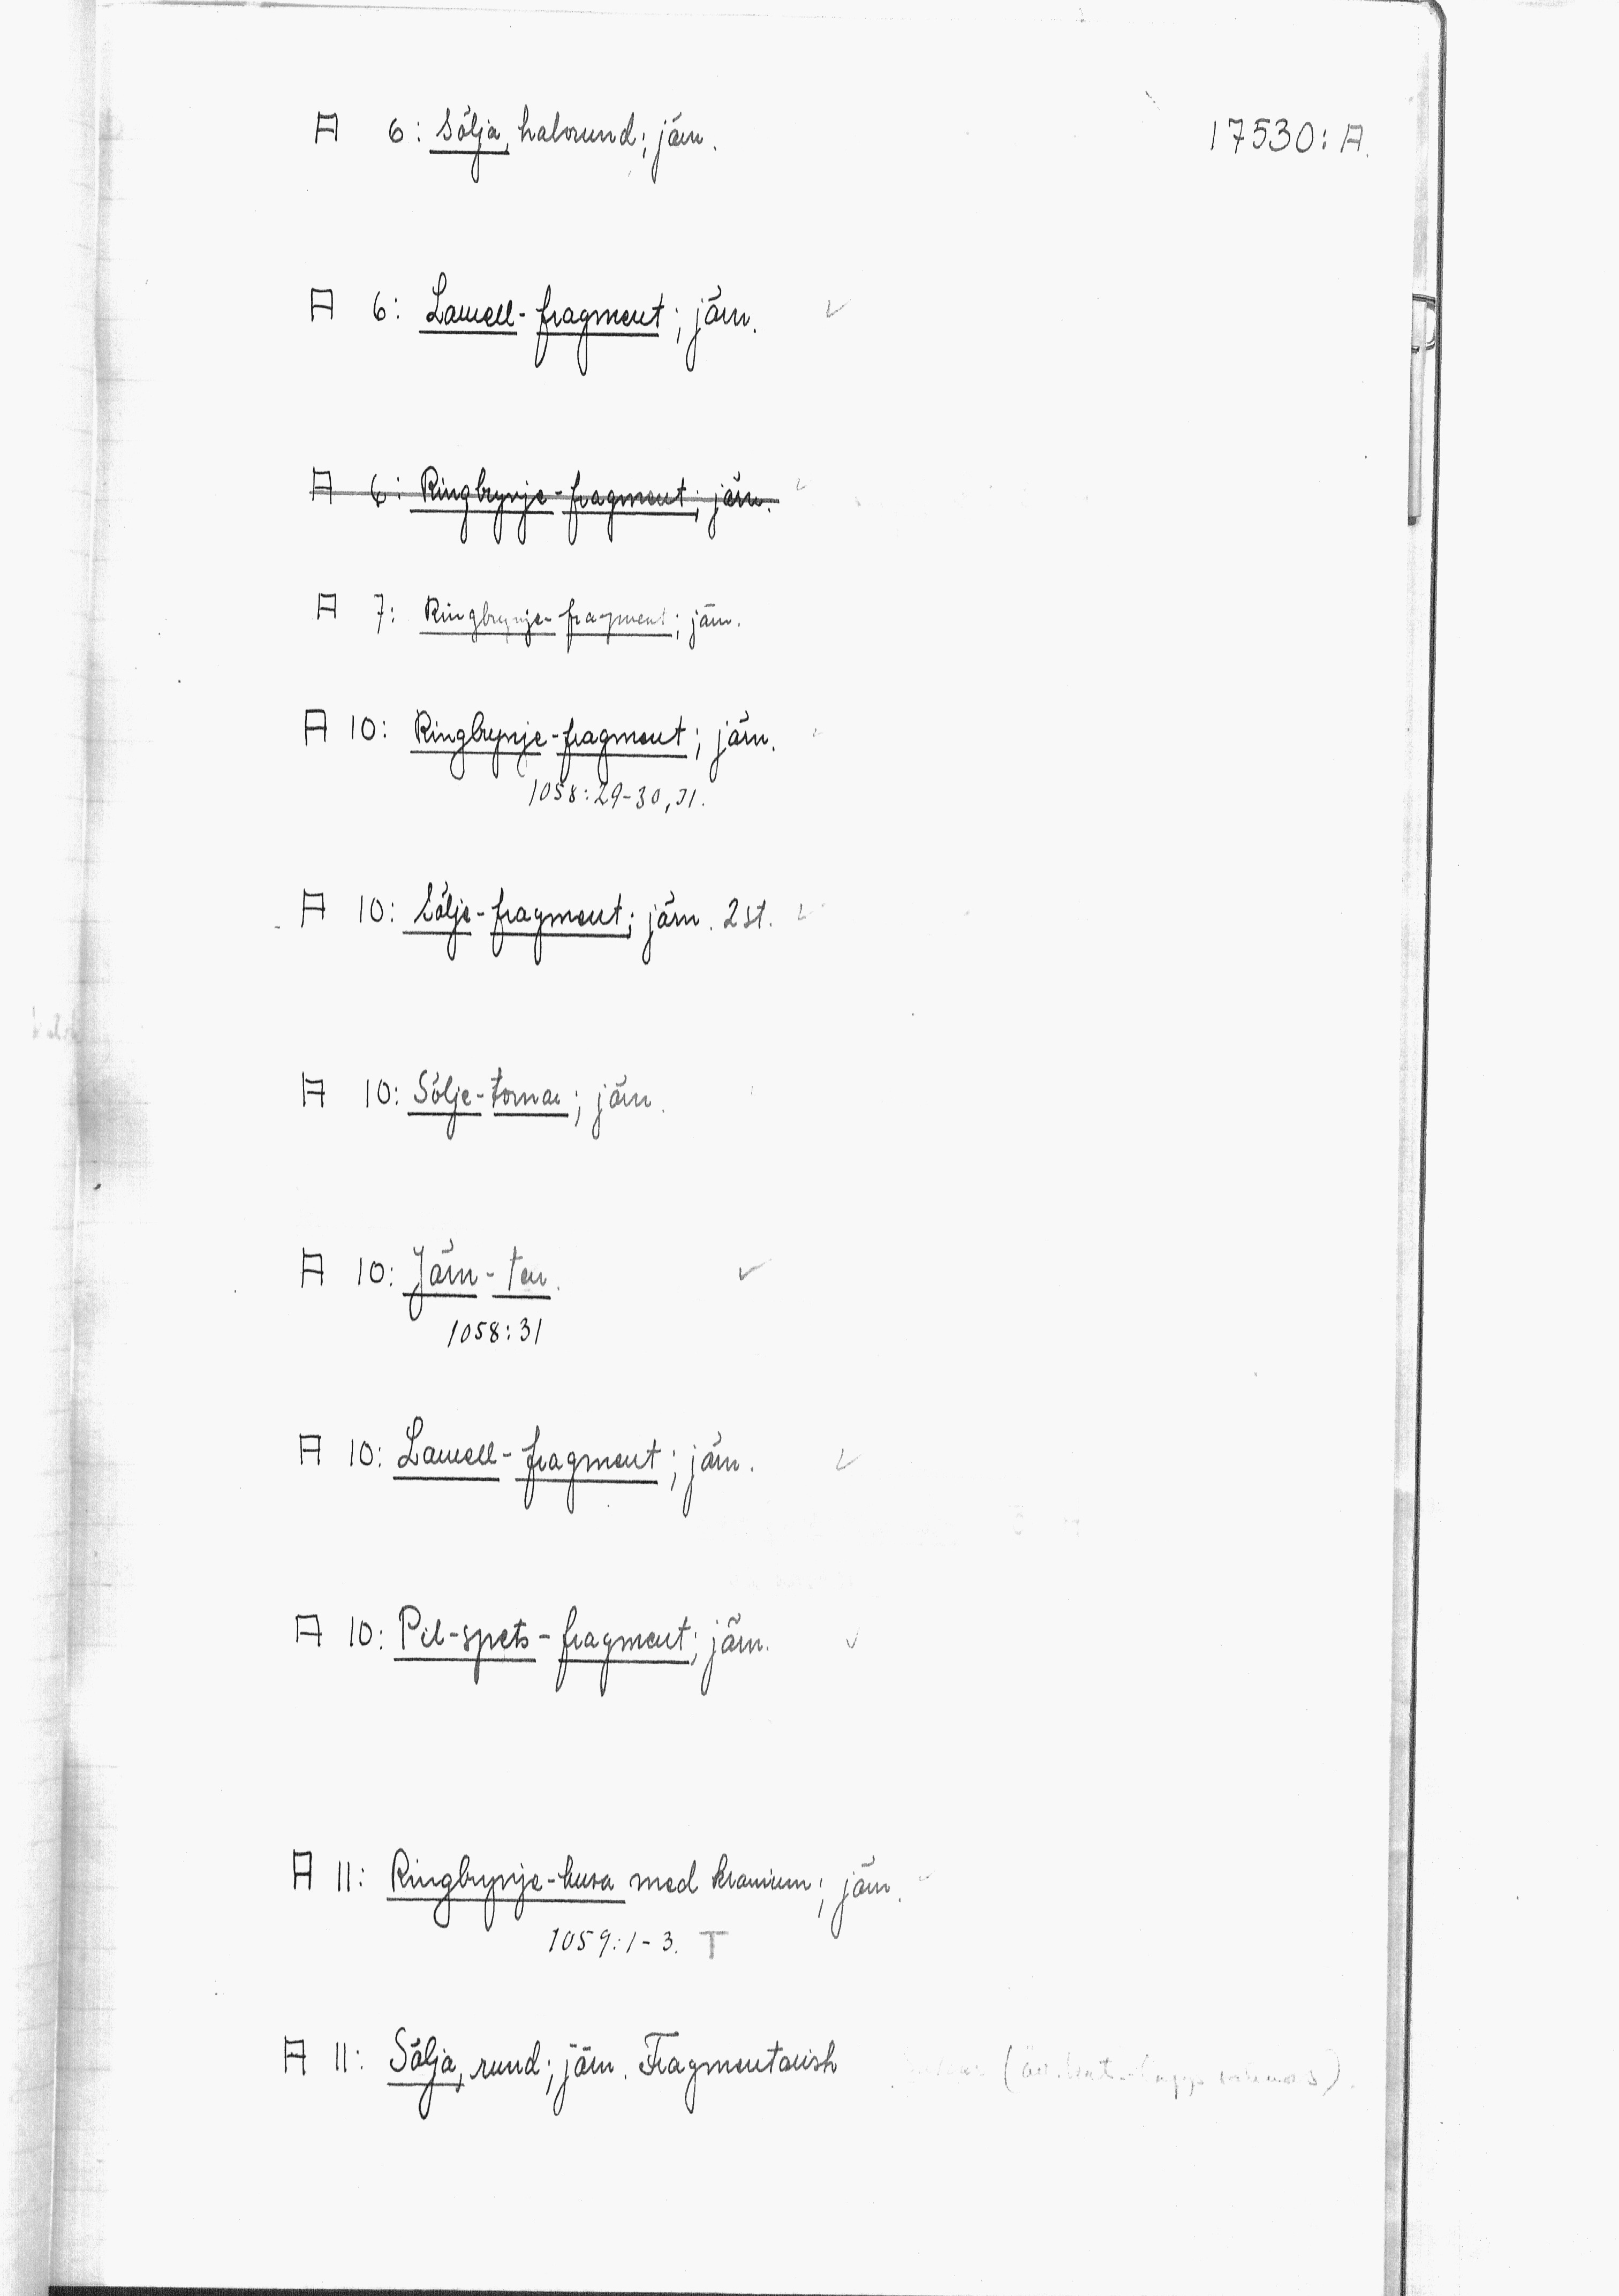 17530:A.
A 6: Sölja, halvrund; järn.
A 6: Lamell-fragment; järn.
A 6: Ringbrynje-fragment; järn.
A 7: Ringbrynje-fragment; järn.
A 10: Ringbrynje-fragment; järn.
1058:29-30,31.
A 10: Sölje-fragment; järn. 2 st.
A 10: Sölje-tornar; järn.
A 10: Järn-ten.
1058:31
A 10: Lamell-fragment; järn.
A 10: Pil-spets-fragment; järn.
A 11: Ringbrynje-huva med kranium; järn.
1059:1-3. T
A 11: Sölja, rund; järn. Fragmentarisk